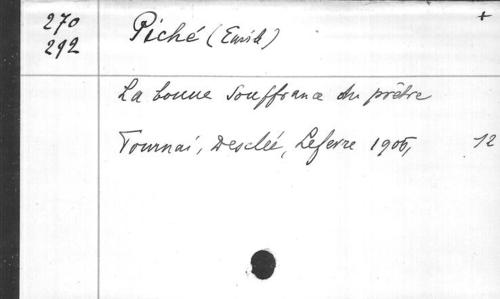 270 Piché (Émile) +
292
La bonne souffrance du prêtre
Tournai, Desclée, Lefevre 1906, 12